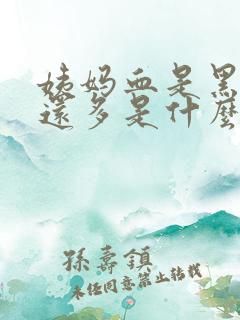 姨妈血是黑
还多是什麽
孫壽鎮
未任同意禁止转载